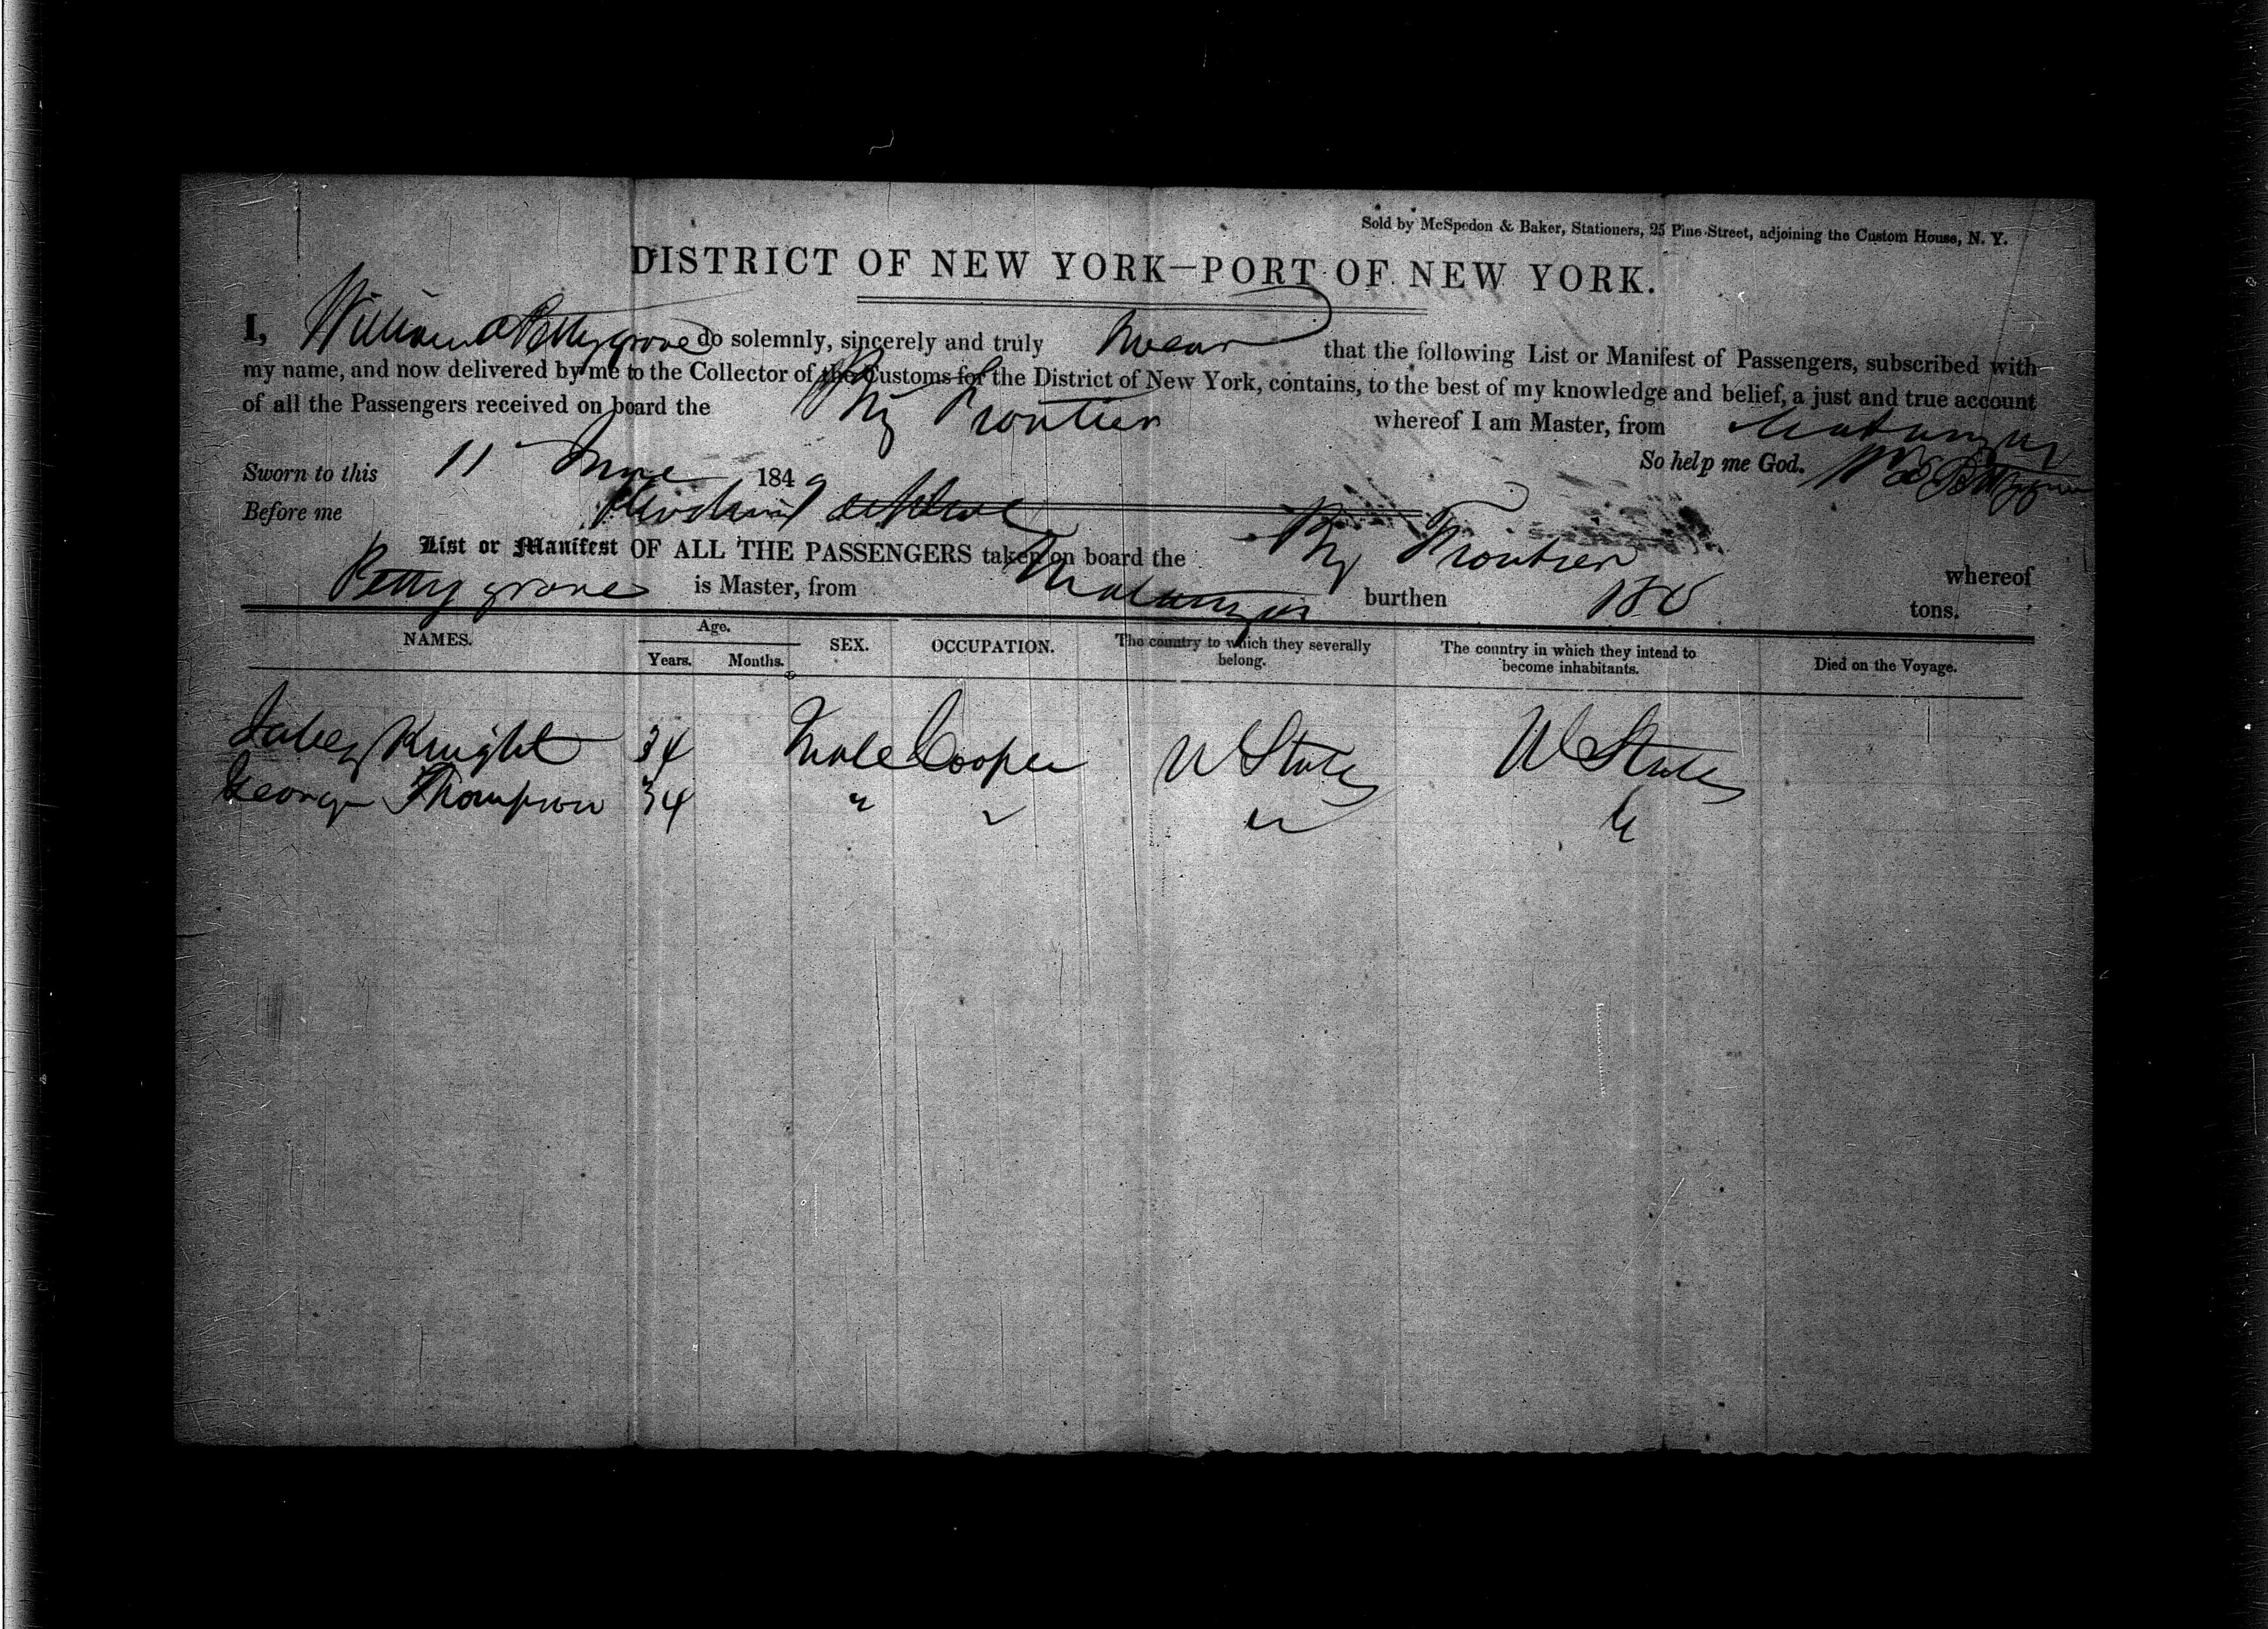 Sold by McSpedon & Baker, Stationers, 25 Pine Street, adjoining the Custom House, N. Y.
DISTRICT OF NEW YORK—PORT OF NEW YORK.
I, William Pettygrove do solemnly, sincerely and truly swear that the following List or Manifest of Passengers, subscribed with
my name, and now delivered by me to the Collector of the Customs for the District of New York, contains, to the best of my knowledge and belief, a just and true account
of all the Passengers received on board the Brig Frontier whereof I am Master, from Matanzas
So help me God.
Sworn to this 11 June 1849
Before me
List or Manifest OF ALL THE PASSENGERS taken on board the Brig Frontier whereof
Pettygrove is Master, from Matanzas burthen 180 tons.
NAMES. Age. Years. Months. SEX. OCCUPATION. The country to which they severally belong. The country in which they intend to become inhabitants. Died on the Voyage.
Jabez Knight 34 Male Cooper U States U States
George Thompson 34 " " " "